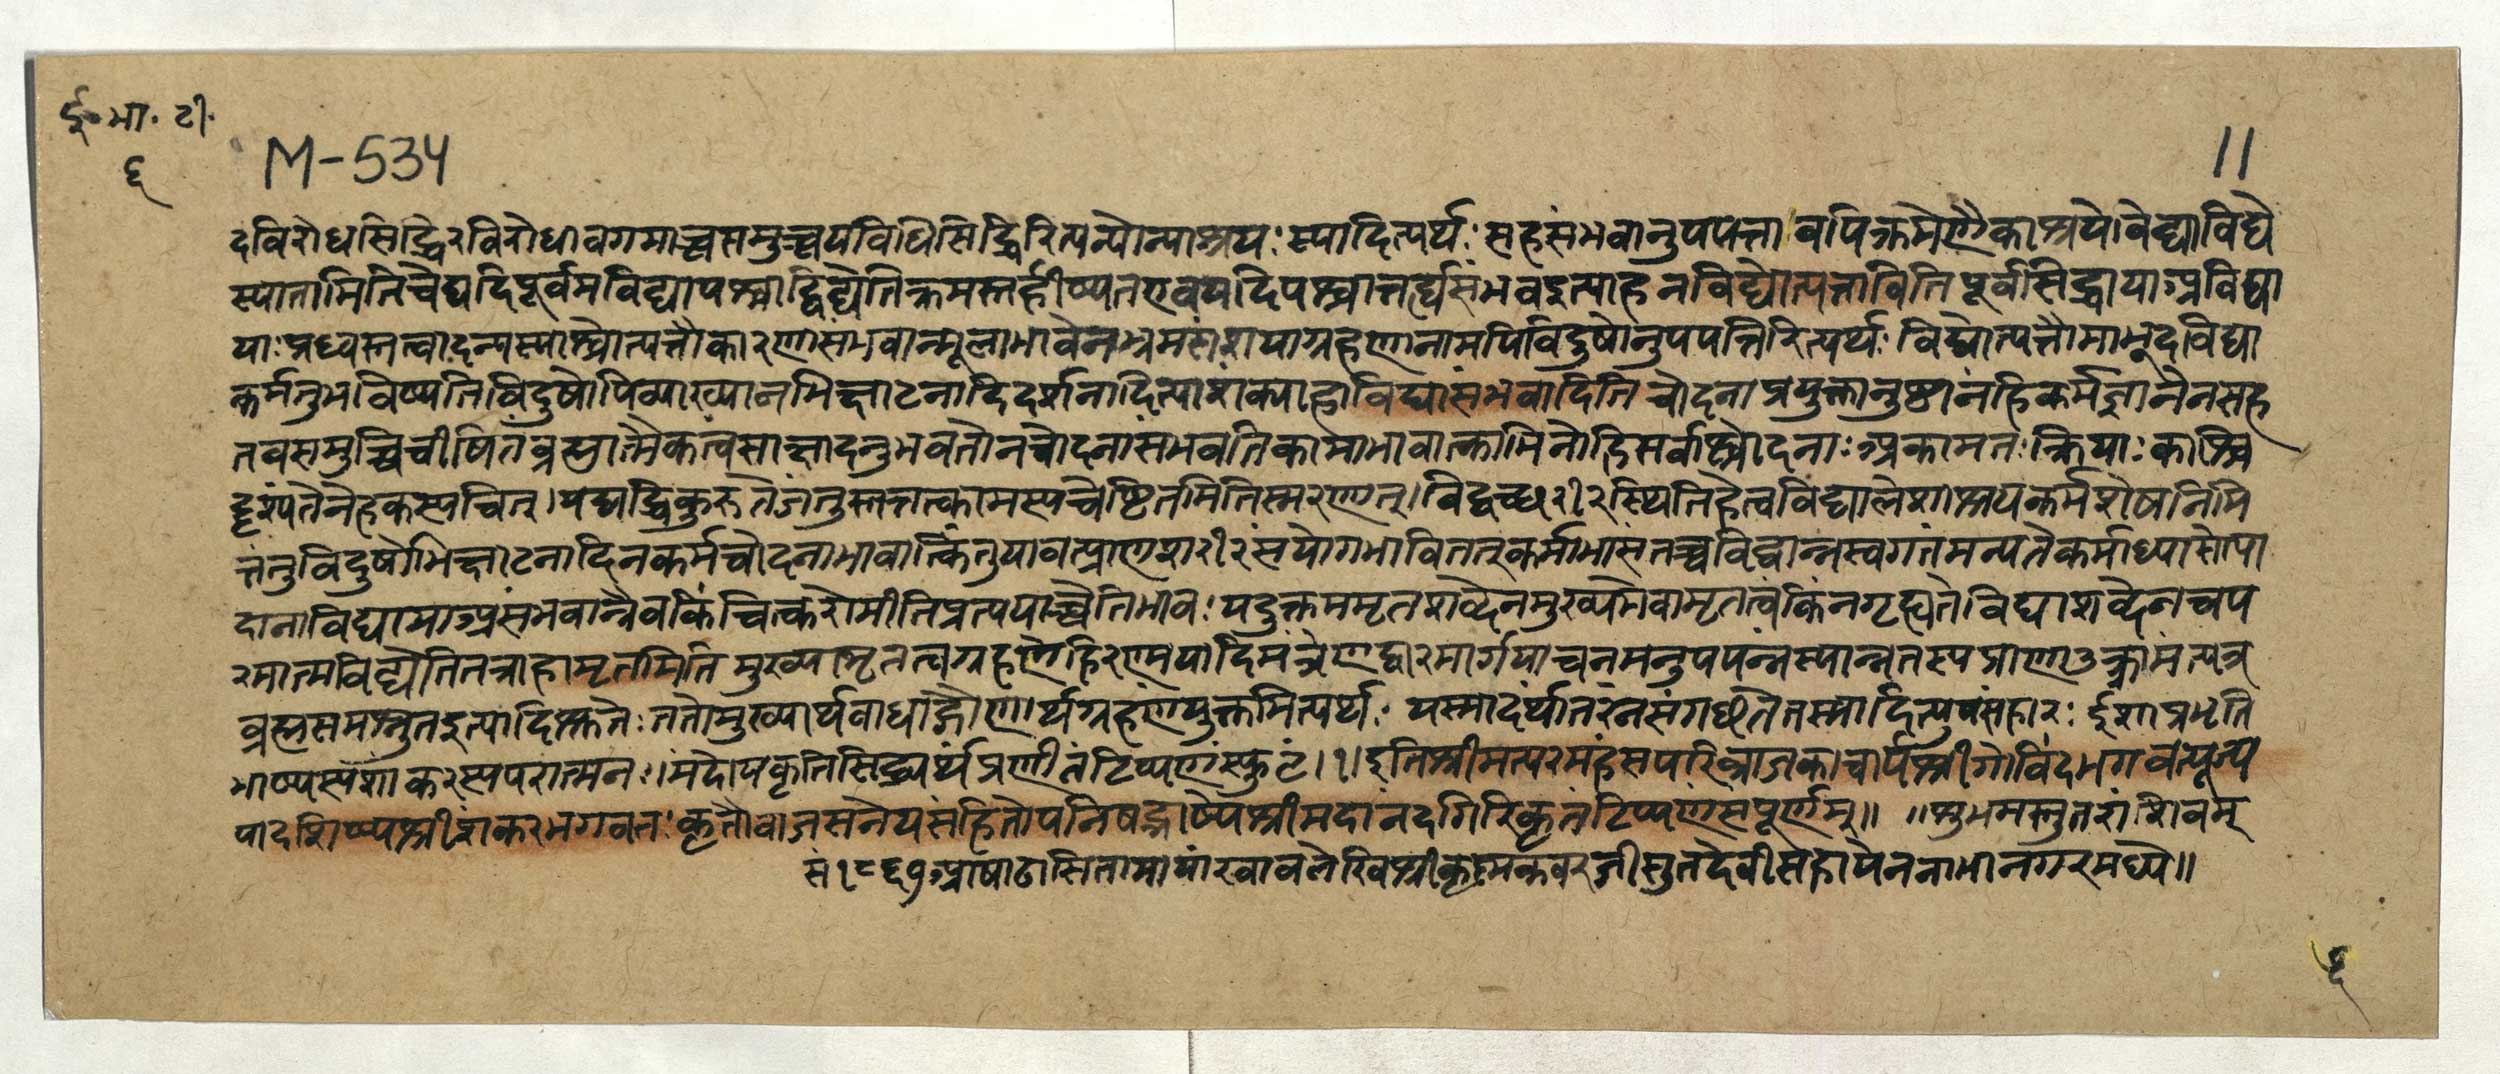 ई॰ भा॰ टी॰
६
M-534
11
दविरोधसिद्धिरविरोधावगमाच्चसमुच्चयविधिसिद्धिरित्यन्योन्याश्रयः स्यादित्यर्थः सहसंभवानुपपत्तावपिक्रमेणैकाश्रये विद्याविद्ये
स्यातामितिचेद्यदिपूर्वमविद्यापश्चाद्विद्येतिक्रमस्तर्हीष्यतएवयदिपश्चात्तर्ह्यसंभवइत्याह नविद्योत्पत्तावितिपूर्वसिद्धाया अविद्या
याःप्रध्वस्तत्वादन्यस्याश्चोत्पत्तौकारणासंभवान्मूलाभावेनभ्रमसंशयाग्रहणानामपिविदुषोनुपपत्तिरित्यर्थः विद्योत्पत्तौमाभूदविद्या
कर्मतुभविष्यतिविदुषोपिव्याख्यानभिक्षाटनादिदर्शनादित्याशंक्याहाविद्यासंभवादिति चोदनाप्रयुक्तानुष्ठानंहिकर्मज्ञानेनसह
तवसमुच्चिचीषितंब्रह्मात्मैकत्वंसाक्षादनुभवतोनचोदनासंभवतिकामाभावात्कामिनोहिसर्वाश्चोदनाः अकामतःक्रियाःकाश्चि
दृश्यंतेनेहकस्यचित्।यद्यद्धिकुरुतेजंतुस्तत्तत्कामस्यचेष्टितमितिस्मरणात्।विद्वच्छरीरस्थितिहेत्वविद्यालेशाश्रयकर्मशेषनिमि
त्तंतुविदुषोभिक्षाटनादिनकर्मचोदनाभावात्किंतुयावत्प्राणशरीरसंयोगभावितत्कर्माभासंतच्चविद्वान्नस्वगतंमन्यतेकर्माध्यासोपा
दानाविद्याया असंभवान्नैवकिंचित्करोमीतिप्रत्ययाच्चेतिभावः यदुक्तममृतशब्देनमुख्यमेवामृतत्वंकिंनगृह्यतेविद्याशब्देनचप
रमात्मविद्येतितत्राहामृतमिति मुख्यामृतत्वग्रहणेहिरण्मयादिमंत्रेणद्वारमार्गयाचनमनुपपंन्नस्यान्नतस्यप्राणाउत्क्रामंत्यत्र
ब्रह्मसमश्नुतइत्यादिश्रुतेः ततोमुख्यार्थबाधाद्गौणार्थग्रहणंयुक्तमित्यर्थः यस्मादर्थांतरंनसंगछतेतस्मादित्युपसंहारः ईशाप्रभृति
भाष्यस्यशांकरस्यपरात्मनः।मंदोपकृतिसिद्ध्यर्थंप्रणीतंटिप्पणंस्फुटं।१। इतिश्रीमत्परमहंसपरिव्राजकाचार्यश्रीगोविंदभगवत्पूज्य
पादशिष्यश्रीशंकरभगवतःकृतौवाजसनेयसंहितोपनिषद्भाष्येश्रीमदानंदगिरिकृतंटिप्पणंसंपूर्णम्॥ ॥शुभमस्तुतरांशिवम्
सं१८६१ आषाढासितामायांरवावलेखिश्रीकृष्णकवरजीसुतदेवीसहायेननाभानगरमध्ये॥
६